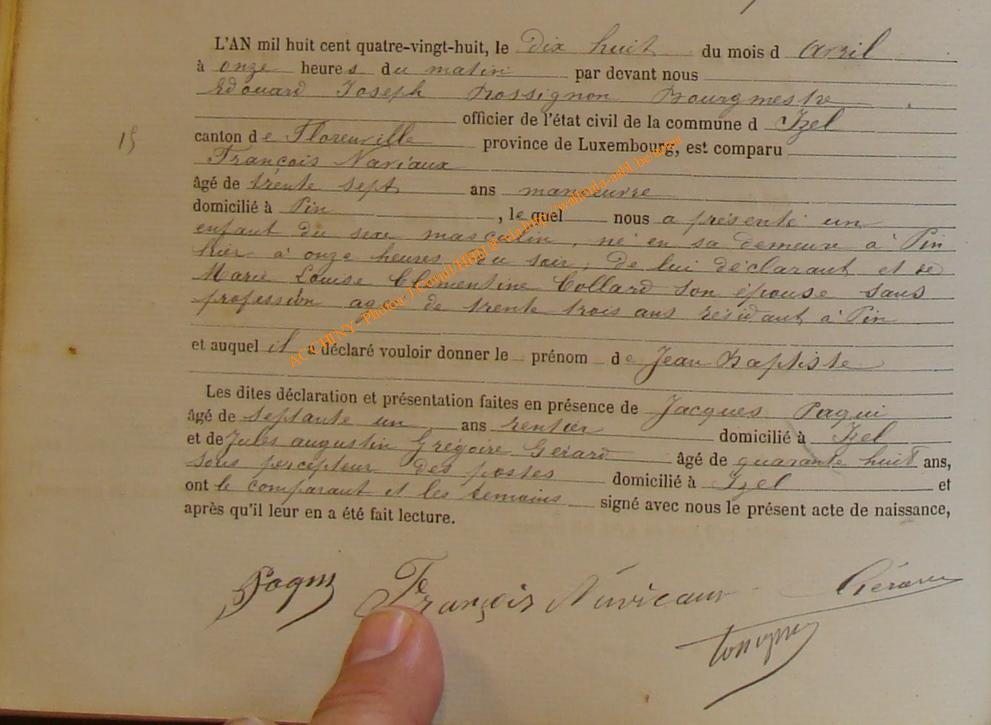 L'AN mil huit cent quatre-vingt-huit, le dix huit du mois d avril
à onze heures du matin par devant nous
Edouard Joseph Rossignon Bourgmestre
officier de l'état civil de la commune d Izel
15 canton de Florenville province de Luxembourg, est comparu
François Naviaux
âgé de trente sept ans manœuvre
domicilié à Pin, le quel nous a présenté un
enfant du sexe masculin, né en sa demeure à Pin
hier à onze heures du soir, de lui déclarant et de
Marie Louise Clémentine Collard son épouse sans
profession agée de trente trois ans résidant à Pin
et auquel il a déclaré vouloir donner le prénom de Jean Baptiste
Les dites déclaration et présentation faites en présence de Jacques Paqui
âgé de septante un ans rentier domicilié à Izel
et de Jules augustin Grégoire Gérard âgé de quarante huit ans,
sous percepteur des postes domicilié à Izel et
ont le comparant et les temoins signé avec nous le présent acte de naissance,
après qu'il leur en a été fait lecture.
François